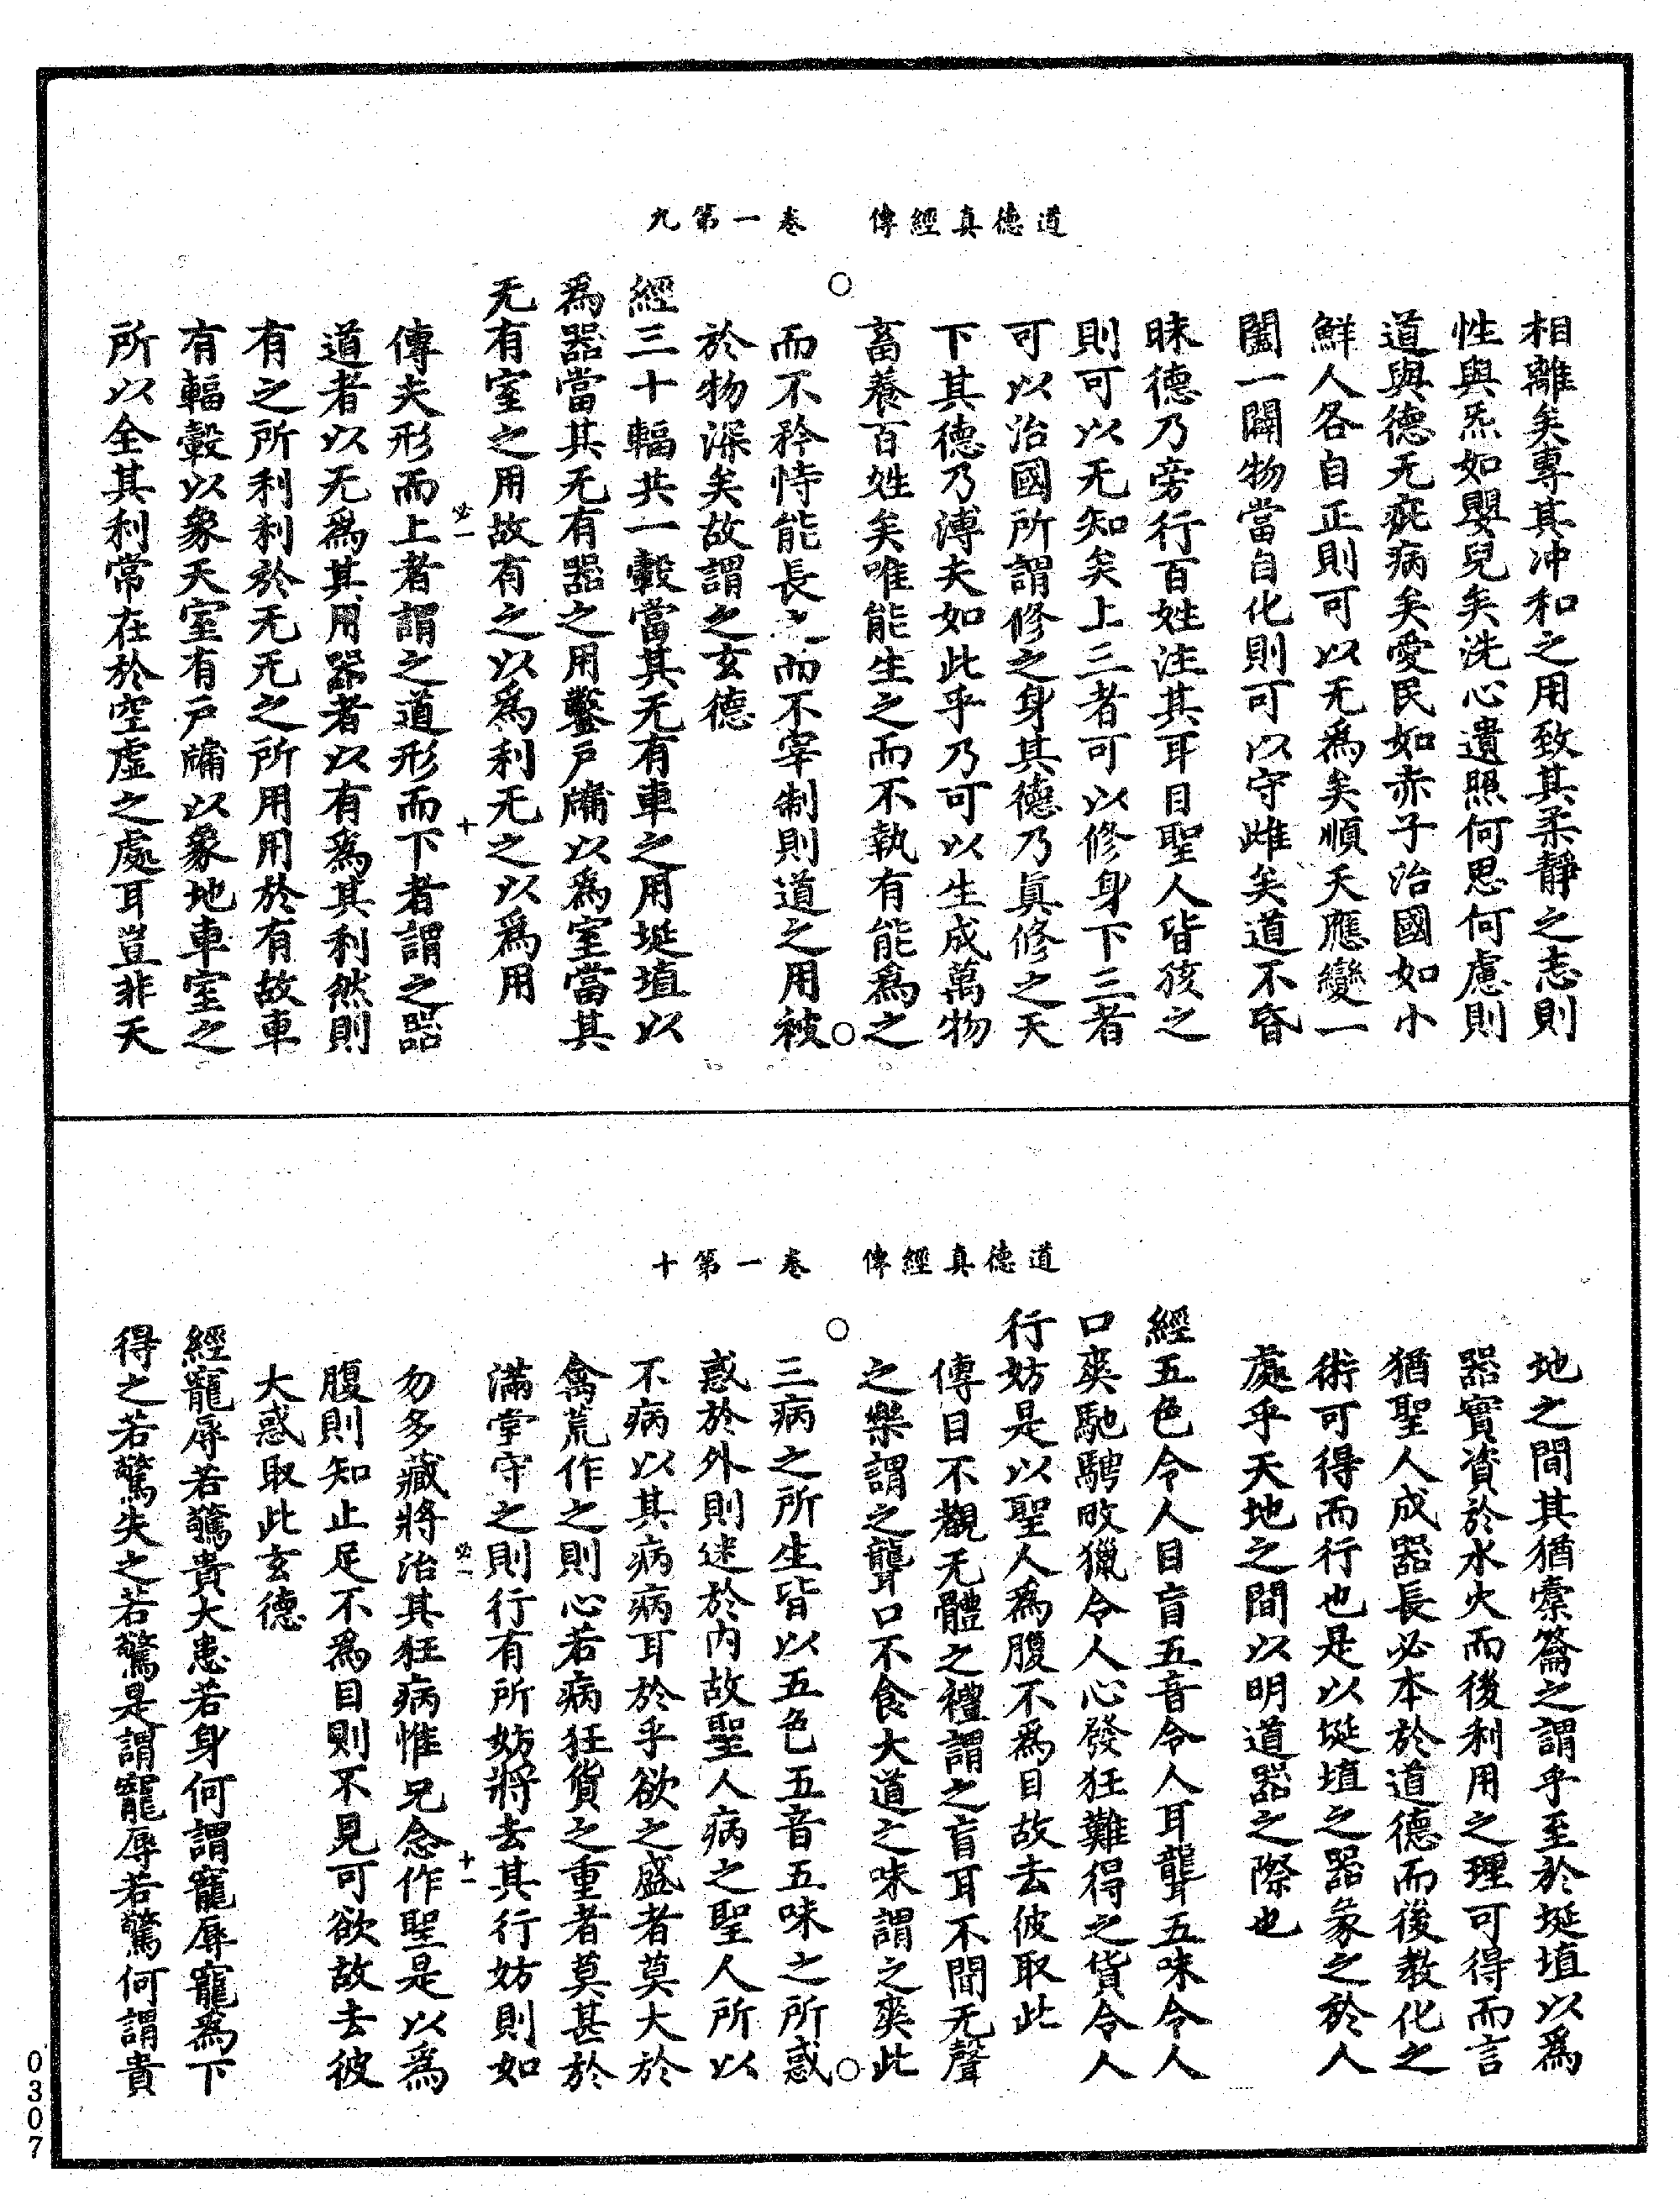 道德真經傳　卷一第九
相離矣專其冲和之用致其柔靜之志則
性與炁如嬰兒矣洗心遺照何思何慮則
道與德无疵病矣愛民如赤子治國如小
鮮人各自正則可以无為矣順天應變一
闔一闢物當自化則可以守雌矣道不昏
昧德乃旁行百姓注其耳目聖人皆孩之
則可以无知矣上三者可以修身下三者
可以治國所謂修之身其德乃真修之天
下其德乃溥夫如此乎乃可以生成萬物
畜養百姓矣唯能生之而不執有能為之
而不矜恃能長之而不宰制則道之用被
於物深矣故謂之玄德
經三十輻共一轂當其无有車之用埏埴以
為器當其无有器之用鑿戶牖以為室當其
无有室之用故有之以為利无之以為用
傳夫形而上者謂之道形而下者謂之器
道者以无為其用器者以有為其利然則
有之所利利於无无之所用用於有故車
有輻轂以象天室有戶牖以象地車室之
所以全其利常在於空虛之處耳豈非天
必一
十
道德真經傳　卷一第十
地之間其猶橐籥之謂乎至於埏埴以為
器實資於水火而後利用之理可得而言
猶聖人成器長必本於道德而後教化之
術可得而行也是以埏埴之器象之於人
處乎天地之間以明道器之際也
經五色令人目盲五音令人耳聾五味令人
口爽馳騁畋獵令人心發狂難得之貨令人
行妨是以聖人為腹不為目故去彼取此
傳目不觀无體之禮謂之盲耳不聞无聲
之樂謂之聾口不食大道之味謂之爽此
三病之所生皆以五色五音五味之所惑
惑於外則迷於內故聖人病之聖人所以
不病以其病病耳於乎欲之盛者莫大於
禽荒作之則心若病狂貨之重者莫甚於
滿堂守之則行有所妨將去其行妨則如
勿多藏將治其狂病惟克念作聖是以為
腹則知止足不為目則不見可欲故去彼
大惑取此玄德
經寵辱若驚貴大患若身何謂寵辱寵為下
得之若驚失之若驚是謂寵辱若驚何謂貴
必一
十一
0307